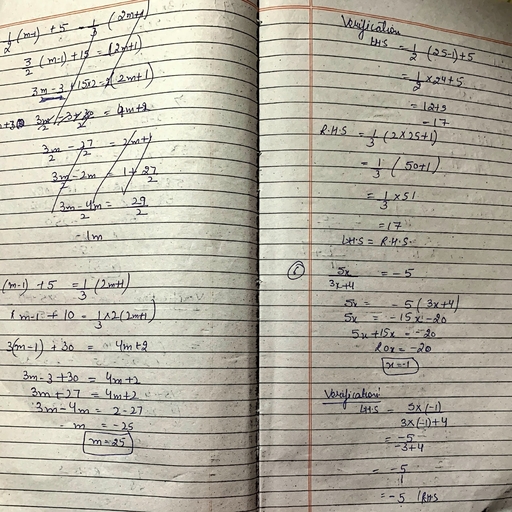 1/2 (m-1) + 5 = 1/3 (2m+1)
3/2 (m-1) + 15 = (2m+1)
3m-3 + 15x2 = 2(2m+1)
= 4m+2
3m/2 - 27/2 = 2m+1
3m/2 - 2m = 1 + 27/2
3m-4m/2 = 29/2
-1m
(m-1) + 5 = 1/3 (2m+1)
m-1 + 10 = 1/3 x 2(2m+1)
3(m-1) + 30 = 4m+2
3m-3+30 = 4m+2
3m+27 = 4m+2
3m-4m = 2-27
m = -25
m=25
Verification
LHS = 1/2 (25-1)+5
= 1/2 x 24+5
= 12+5
- 17
R.H.S = 1/3 (2x25+1)
= 1/3 (50+1)
= 1/3 x 51
= 17
LHS = R.H.S.
5x/3x+4 = -5
5x = -5(3x+4)
5x = -15x-20
5x+15x = -20
20x = -20
x=-1
Verification
LHS = 5x(-1)/3x(-1)+4
= -5/-3+4
= -5/1
= -5 RHS